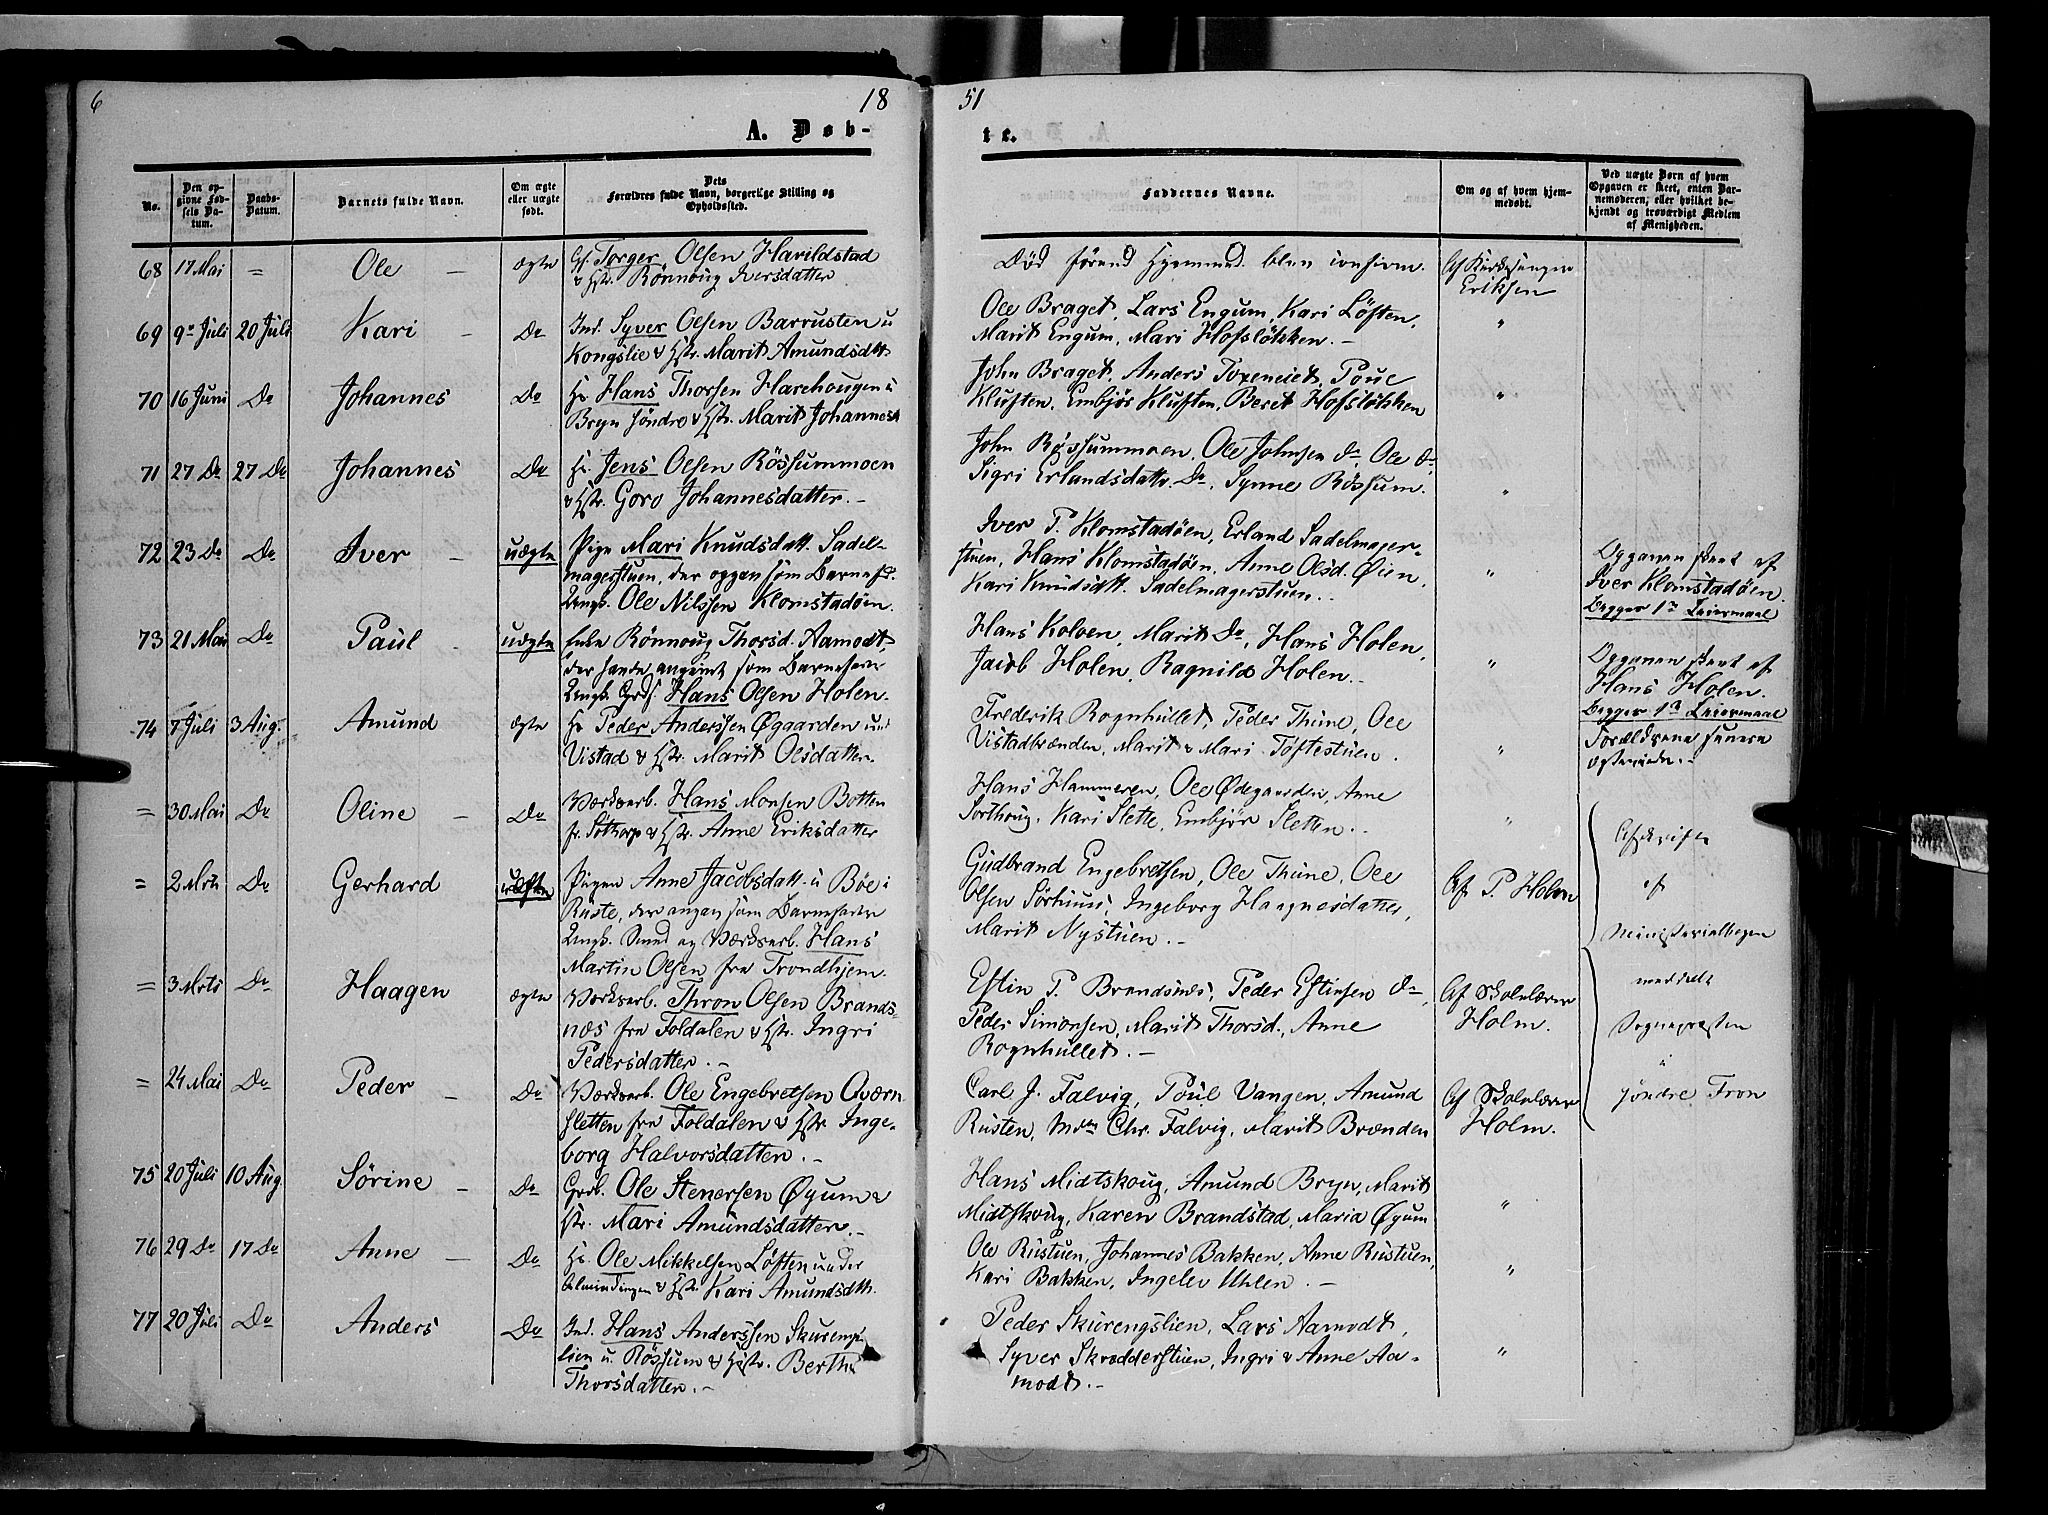 6
18
51
A. Døb-
te.
No.
Den op-
givne Fød-
sels Da-
tum.
Daabs-
Datum.
Barnets fulde Navn.
Om ægte
eller uægte
født.
Dets
Forældres fulde Navn, borgerlige Stilling og
Opholdssted.
Faddernes Navne.
Om og af hvem hjem-
medøbt.
Ved uægte Børn af hvem
Opgaven er skeet, enten Bar-
nemoderen, eller hvilket be-
kjendt og troværdigt Medlem
af Menigheden.
68 17 Mai = Ole - ægte
Torger Olsen Harildstad
& Hstr. Rønnoug Iversdatter
Død førend Hjemmed. blev
Af Kirkesanger
Eriksen
69 9de Juli 20 Juli Kari - Do
Ind. Syver Olsen Barrusten u
Kongslie & Hstr. Marit Amundsdtt
Ole Braget, Lars Engum, Kari Løften,
Marit Engum, Mari Hofsløkken. -
"
70 16 Juni Do Johannes Do
Hs. Hans Thorsen Harehougen u
Bryn søndre & Hstr. Marit Johannesd
John Braget, Anders Toxeneiet, Poul
Kluften, Embjør Kluften, Beret Hofsløkken
"
71 27 Do 27 Do Johannes Do
Hs. Jens Olsen Røssummoen
& Hstr. Goro Johannesdatter. -
John Røssummoen, Ole Johnsen do, Ole do
Sigri Erlandsdatr. Do, Synne Røssum.
"
72 23 Do Do Iver - uægte
Pige Mari Knudsdatt. Sadel-
magerstuen, der opgav som Barnefd.
Ungk. Ole Nilssen Klomstadøen.
Iver P. Klomstadøen, Erland Sadelmager-
stuen, Hans Klomstadøen, Anne Olsd. Øien,
Kari Knudsdtt. Sadelmagerstuen.
"
Opgaven skeet af
Iver Klomstadøen.
Begges 1ste Leiermaal
73 21 Mai Do Paul - uægte
Enke Rønnoug Thorsd. Aamodt,
der havde angivet som Barnefader
Ungk. Grds. Hans Olsen Holen.
Hans Kolven, Marit Do, Hans Holen,
Jacob Holen, Ragnild Holen. -
"
Opgaven skeet af
Hans Holen.
Begges 1ste Leiermaal
74 7 Juli 3 Aug. Amund ægte
Hs Peder Anderssen Øgaarden und
Vistad & Hstr. Marit Olsdatter.
Frederik Rognhullet, Peder Thune, Ole
Vistadbrænden, Marit & Mari Toftestuen.
"
Forældrene senere
ægteviede. -
= 30 Mai Do Oline - Do
Værksarb. Hans Monsen Botten
fr. Søttorp & Hstr. Anne Eriksdatter
Hans Hammeren, Ole Ødegaarden, Anne
Sorthoug, Kari Slette, Embjør Sletten.
"
= 2 Mrts Do Gerhard uægte
Pigen Anne Jacobsdatt. u Bøe i
Ruste, der angav som Barnefader
Ungk. Smed og Værksarb. Hans
Martin Olsen fra Trondhjem.
Gudbrand Engebretsen, Ole Thune, Ole
Olsen Sørhuus, Ingeborg Haagnesdatter,
Marit Nystuen. -
Af P. Holm
= 3 Mrts Do Haagen ægte
Værksarb. Thron Olsen Brands-
næs fra Foldalen & Hstr. Ingri
Pedersdatter. -
Estin P. Brandsnæs, Peder Estinsen do
Peder Simonsen, Marit Thorsd., Anne
Rognhullet. -
Af Skolelærer
Holm.
= 24 Mai Do Peder - Do
Værksarb. Ole Engebretsen Qværn
sletten fra Foldalen & Hstr. Inge-
borg Halvorsdatter. -
Carl J. Falvig, Poul Vangen, Amund
Rusten, Mdm Chr. Falvig, Marit Brænden
Af Skolelærer
Holm.
Afskrift
af
Ministerialbogen
meddelt
Sognepresten
i
søndre Fron
75 20 Juli 10 Aug. Sørine - Do
Grdb. Ole Stenersen Øyum &
Hstr. Mari Amundsdatter. -
Hans Midtskoug, Amund Bryn, Marit
Midtskoug, Karen Brandstad, Maria Øyum
"
76 29 Do 17 Do Anne - Do
Hs. Ole Mikkelsen Løften under
Almindingen & Hstr. Kari Amundsdtt.
Ole Rustuen, Johannes Bakken, Anne Rustuen,
Kari Bakken, Ingelev Uhlen. -
"
77 20 Juli Do Anders Do
Ind. Hans Anderssen Skurengs-
lien u. Røssum & Hstr. Berthe
Thorsdatter. -
Peder Skurengslien, Lars Aamodt,
Syver Skrædderstuen, Ingri & Anne Aa-
modt. -
"